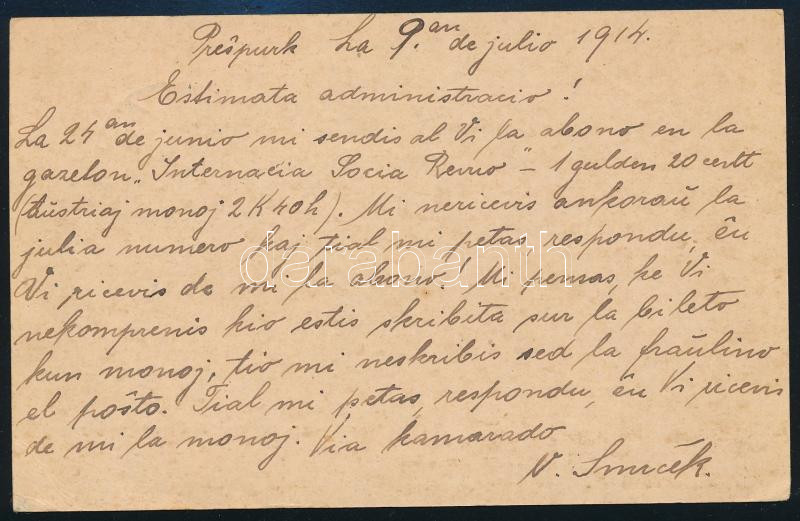 Preŝpurk La 9.an de julio 1914.
Estimata administracio!
La 24an de junio mi sendis al Vi la abono en la
gazelon „Internacia Socia Revuo" – 1 gulden 20 centt
(aŭstriaj monoj 2 K 40 h). Mi nericevis ankoraŭ la
julia numero kaj tial mi petas, respondu, ĉu
Vi ricevis de mi la abono! Mi pensas, ke Vi
nekomprenis kio estis skribita sur la bileto
kun monoj, tio mi neskribis sed la fraŭlino
el poŝto. Tial mi petas, respondu, ĉu Vi ricevis
de mi la monoj. Via kamarado
V. Smrĉék.
darabanth